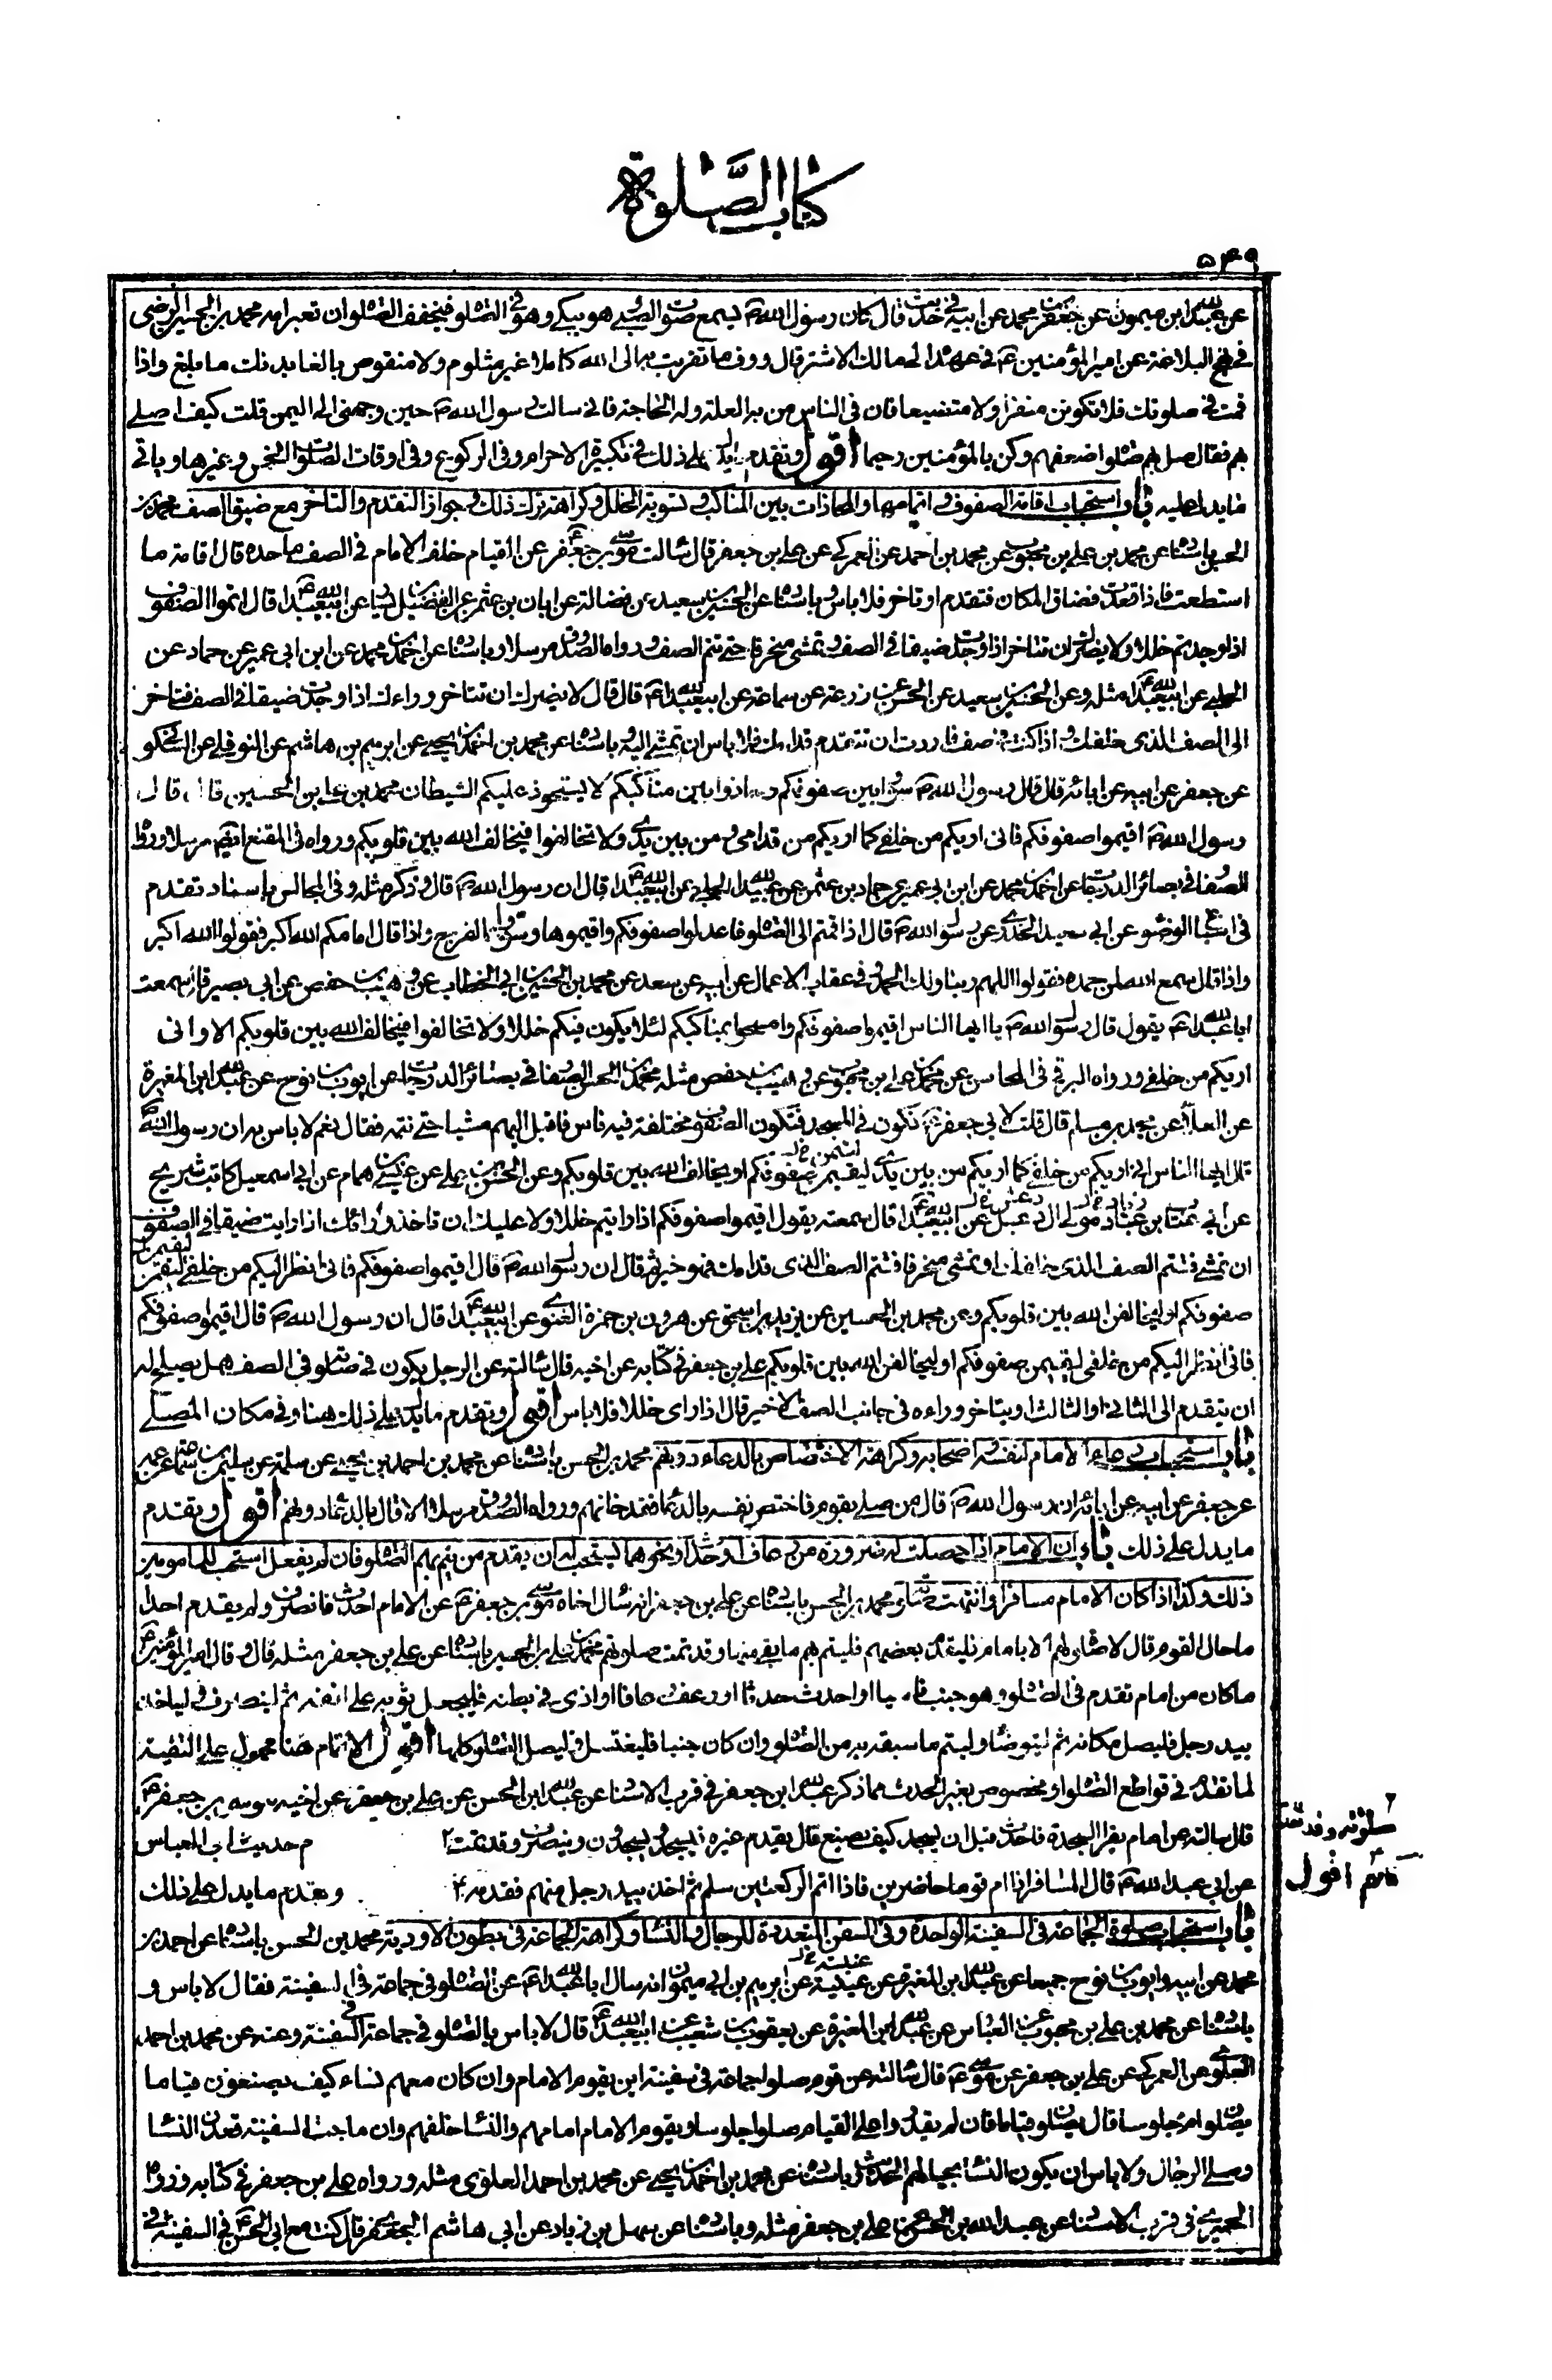 كتاب الصلوة
٥٤٩
عن عبد الله بن ميمون عن جعفر بن محمد عن ابيه في حديث قال كان رسول الله ص يسمع صوت الصبي وهو يبكي وهو في الصلوة فيخفف الصلوة ان تعبر امه محمد بن الحسين الرضي
في نهج البلاغة عن امير المؤمنين ع في عهده الى مالك الاشتر قال ووف ما تقربت به الى الله كاملا غير مثلوم ولا منقوص بالغا بدنك ما بلغ واذا
قمت في صلوتك فلا تكونن منفرا ولا مضيعا فان في الناس من به العلة وله الحاجة فاني سالت رسول الله ص حين وجهني الى اليمن قلت كيف اصلي
بهم فقال صل بهم صلوة اضعفهم وكن بالمؤمنين رحيما اقول وتقدم ما يدل على ذلك في تكبيرة الاحرام وفي الركوع وفي اوقات الصلوات الخمس وغيرها وياتي
ما يدل عليه باب استحباب اقامة الصفوف واتمامها والمحاذات بين المناكب وتسوية الخلل وكراهة ترك ذلك وجواز التقدم والتاخر مع ضيق الصف محمد بن
الحسن باسناده عن محمد بن علي بن محبوب عن محمد بن احمد عن العمركي عن علي بن جعفر قال سالت موسى بن جعفر ع عن القيام خلف الامام في الصف ما حده قال اقامة ما
استطعت فاذا قعدت فضاق المكان فتقدم او تاخر فلا باس وباسناده عن الحسين بن سعيد عن فضالة عن ابان بن عثمن عن الفضيل بن يسار عن ابي عبد الله ع قال اتموا الصفوف
اذا وجدتم خللا ولا يضرك ان تتاخر اذا وجدت ضيقا في الصف وتمشي منحرفا حتى تتم الصف ورواه الصدوق مرسلا وباسناده عن احمد بن محمد عن ابن ابي عمير عن حماد عن
الحلبي عن ابي عبد الله ع مثله وعن الحسين بن سعيد عن الحسن عن زرعة عن سماعة عن ابي عبد الله ع قال قال لا يضرك ان تتاخر وراءك اذا وجدت ضيقا في الصف فتاخر
الى الصف الذي خلفك واذا كنت في صف فاردت ان تتقدم قدامك فلا باس ان تمشي اليه وباسناده عن محمد بن احمد بن يحيى عن ابرهيم بن هاشم عن النوفلي عن السكوني
عن جعفر عن ابيه عن ابائه قال قال رسول الله ص سووا بين صفوفكم وحاذوا بين مناكبكم لا يستحوذ عليكم الشيطان محمد بن علي بن الحسين قال قال
رسول الله ص اقيموا صفوفكم فاني اريكم من خلفي كما اريكم من قدامي ومن بين يدي ولا تخالفوا فيخالف الله بين قلوبكم ورواه في المقنع ايضا مرسلا ورواه
الصفار في بصائر الدرجات عن احمد بن محمد عن ابن ابي عمير عن حماد بن عثمن عن عبيد الله الحلبي عن ابي عبد الله ع قال ان رسول الله ص قال وذكر مثله وفي المجالس باسناد تقدم
في اسباغ الوضوء عن ابي سعيد الخدري عن رسول الله ص قال اذا قمتم الى الصلوة فاعدلوا صفوفكم واقيموها وسووا الفرج واذا قال امامكم الله اكبر فقولوا الله اكبر
واذا قال سمع الله لمن حمده فقولوا اللهم ربنا ولك الحمد وفي عقاب الاعمال عن ابيه عن سعد عن محمد بن الحسين بن ابي الخطاب عن وهيب بن حفص عن ابي بصير قال سمعت
ابا عبد الله ع يقول قال رسول الله ص يا ايها الناس اقيموا صفوفكم وامسحوا بمناكبكم لئلا يكون فيكم خلل ولا تخالفوا فيخالف الله بين قلوبكم الا واني
اريكم من خلفي ورواه البرقي في المحاسن عن محمد بن علي بن محبوب عن وهيب بن حفص مثله محمد بن الحسن الصفار في بصائر الدرجات عن ايوب بن نوح عن عبد الله بن المغيرة
عن العلاء عن محمد بن مسلم قال قلت لابي جعفر ع نكون في المسجد فتكون الصفوف مختلفة فيه ناس فاقبل اليهم مشيا حتى نتمه فقال نعم لا باس به ان رسول الله ص
قال ايها الناس اني اريكم من خلفي كما اريكم من بين يدي ليقيمن صفوفكم او ليخالفن الله بين قلوبكم وعن الحسن بن علي عن عبيس بن هشام عن ابي اسمعيل كاتب شريح
عن ابي عتاب بن زياد مولى ال دغش عن ابي عبد الله ع قال سمعته يقول اقيموا صفوفكم اذا رايتم خللا ولا عليك ان تاخذ وراءك اذا رايت ضيقا في الصفوف
ان تمشي فتتم الصف الذي خلفك او تمشي منحرفا فتتم الصف الذي قدامك فهو خير ثم قال ان رسول الله ص قال اقيموا صفوفكم فاني انظر اليكم من خلفي لتقيمن
صفوفكم او ليخالفن الله بين قلوبكم وعن محمد بن الحسين عن يزيد بن اسحق عن هرون بن حمزة الغنوي عن ابي عبد الله ع قال ان رسول الله ص قال اقيموا صفوفكم
فاني انظر اليكم من خلفي لتقيمن صفوفكم او ليخالفن الله بين قلوبكم علي بن جعفر في كتابه عن اخيه قال سالته عن الرجل يكون في صلوته في الصف هل يصلح له
ان يتقدم الى الثاني او الثالث او يتاخر وراءه في جانب الصف الاخير قال اذا راى خللا فلا باس اقول وتقدم ما يدل على ذلك هنا وفي مكان المصلي
باب استحباب دعاء الامام لنفسه ولاصحابه وكراهة الاختصاص بالدعاء دونهم محمد بن الحسن باسناده عن محمد بن احمد بن يحيى عن سلمة عن سليمان بن سماعة عن عمه
عن جعفر عن ابيه عن ابائه ان رسول الله ص قال من صلى بقوم فاختص نفسه بالدعاء فقد خانهم ورواه الصدوق مرسلا الا انه قال بالدعاء دونهم اقول وتقدم
ما يدل على ذلك باب ان الامام اذا حصلت له ضرورة من رعاف او حدث او نحوهما يستحب له ان يقدم من يتم بهم الصلوة فان لم يفعل استحب للمامومين
ذلك وكذا اذا كان الامام مسافرا وانتهت صلوته محمد بن الحسن باسناده عن علي بن جعفر انه سال اخاه موسى بن جعفر ع عن الامام احدث فانصرف ولم يقدم احدا
ما حال القوم قال لا صلوة لهم الا بامام فليتقدم بعضهم فليتم بهم ما بقي منها وقد تمت صلوتهم محمد بن علي بن الحسين باسناده عن علي بن جعفر مثله قال وقال امير المؤمنين ع
ما كان من امام تقدم في الصلوة وهو جنب ناسيا او احدث حدثا او رعف رعافا او اذى في بطنه فليجعل ثوبه على انفه ثم لينصرف وليأخذ
بيد رجل فليصل مكانه ثم ليتوضا وليتم ما سبقه به من الصلوة وان كان جنبا فليغتسل وليصل الصلوة كلها اقول الاتمام هنا محمول على التقية
لما تقدم في قواطع الصلوة او مخصوص بغير الحدث مما ذكر عبد الله بن جعفر في قرب الاسناد عن عبد الله بن الحسن عن علي بن جعفر عن اخيه موسى بن جعفر ع
قال سالته عن امام يقرا السجدة فاحدث قبل ان يسجد كيف يصنع قال يقدم غيره فيسجد ويسجدون وينصرف وقد تمت ٢ م حديث ابي العباس
صلوته وقد تقد
عن ابي عبد الله ع قال المسافر اذا ام قوما حاضرين فاذا اتم الركعتين سلم ثم اخذ بيد رجل منهم فقدمه وتقدم ما يدل على ذلك
اقول
باب استحباب صلوة الجماعة في السفينة الواحدة وفي السفن المتعددة للرجال والنساء وكراهة الجماعة في بطون الاودية محمد بن الحسن باسناده عن احمد بن
محمد عن ابيه وايوب بن نوح جميعا عن عبد الله بن المغيرة عن عيينة عن ابرهيم بن ابي ميمون انه سال ابا عبد الله ع عن الصلوة في جماعة في السفينة فقال لا باس و
باسناده عن محمد بن علي بن محبوب عن العباس عن عبد الله بن المغيرة عن يعقوب بن شعيب عن ابي عبد الله ع قال لا باس بالصلوة في جماعة في السفينة وعنه عن محمد بن احمد
العلوي عن العمركي عن علي بن جعفر عن موسى ع قال سالته عن قوم صلوا جماعة في سفينة اين يقوم الامام وان كان معهم نساء كيف يصنعون قياما
يصلون ام جلوسا قال يصلون قياما فان لم يقدروا على القيام صلوا جلوسا ويقوم الامام امامهم والنساء خلفهم وان ماجت السفينة قعدن النساء
وصلى الرجال ولا باس ان يكون النساء بحيالهم الحديث وباسناده عن محمد بن احمد بن يحيى عن محمد بن احمد العلوي مثله ورواه علي بن جعفر في كتابه ورواه
الحميري في قرب الاسناد عن عبد الله بن الحسن عن علي بن جعفر مثله وباسناده عن سهل بن زياد عن ابي هاشم الجعفري قال كنت مع ابي الحسن ع في السفينة في